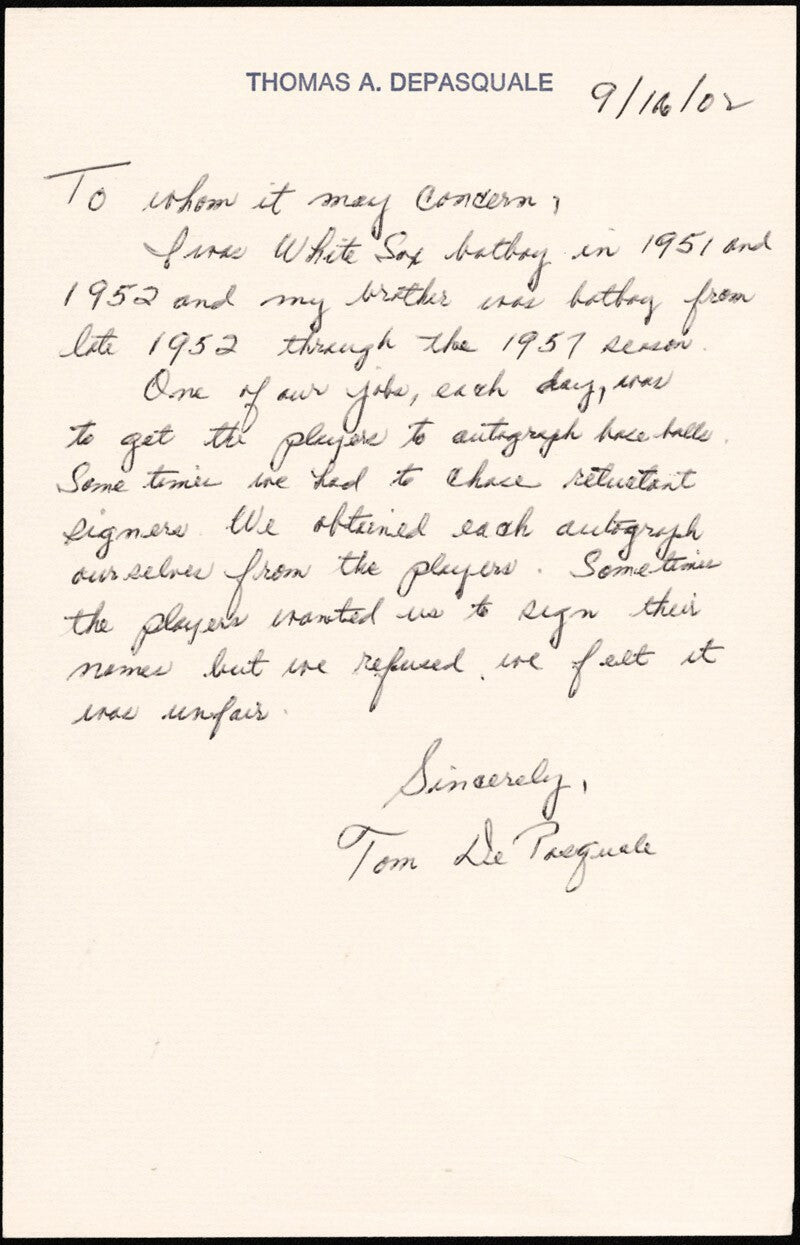 THOMAS A. DEPASQUALE
9/16/02
To whom it may concern,
I was White Sox batboy in 1951 and
1952 and my brother was batboy from
late 1952 through the 1957 season.
One of our jobs, each day, was
to get the players to autograph base balls.
Some times we had to chase reluctant
signers. We obtained each autograph
ourselves from the players. Sometimes
the players wanted us to sign their
names but we refused. we felt it
was unfair.
Sincerely,
Tom DePasquale